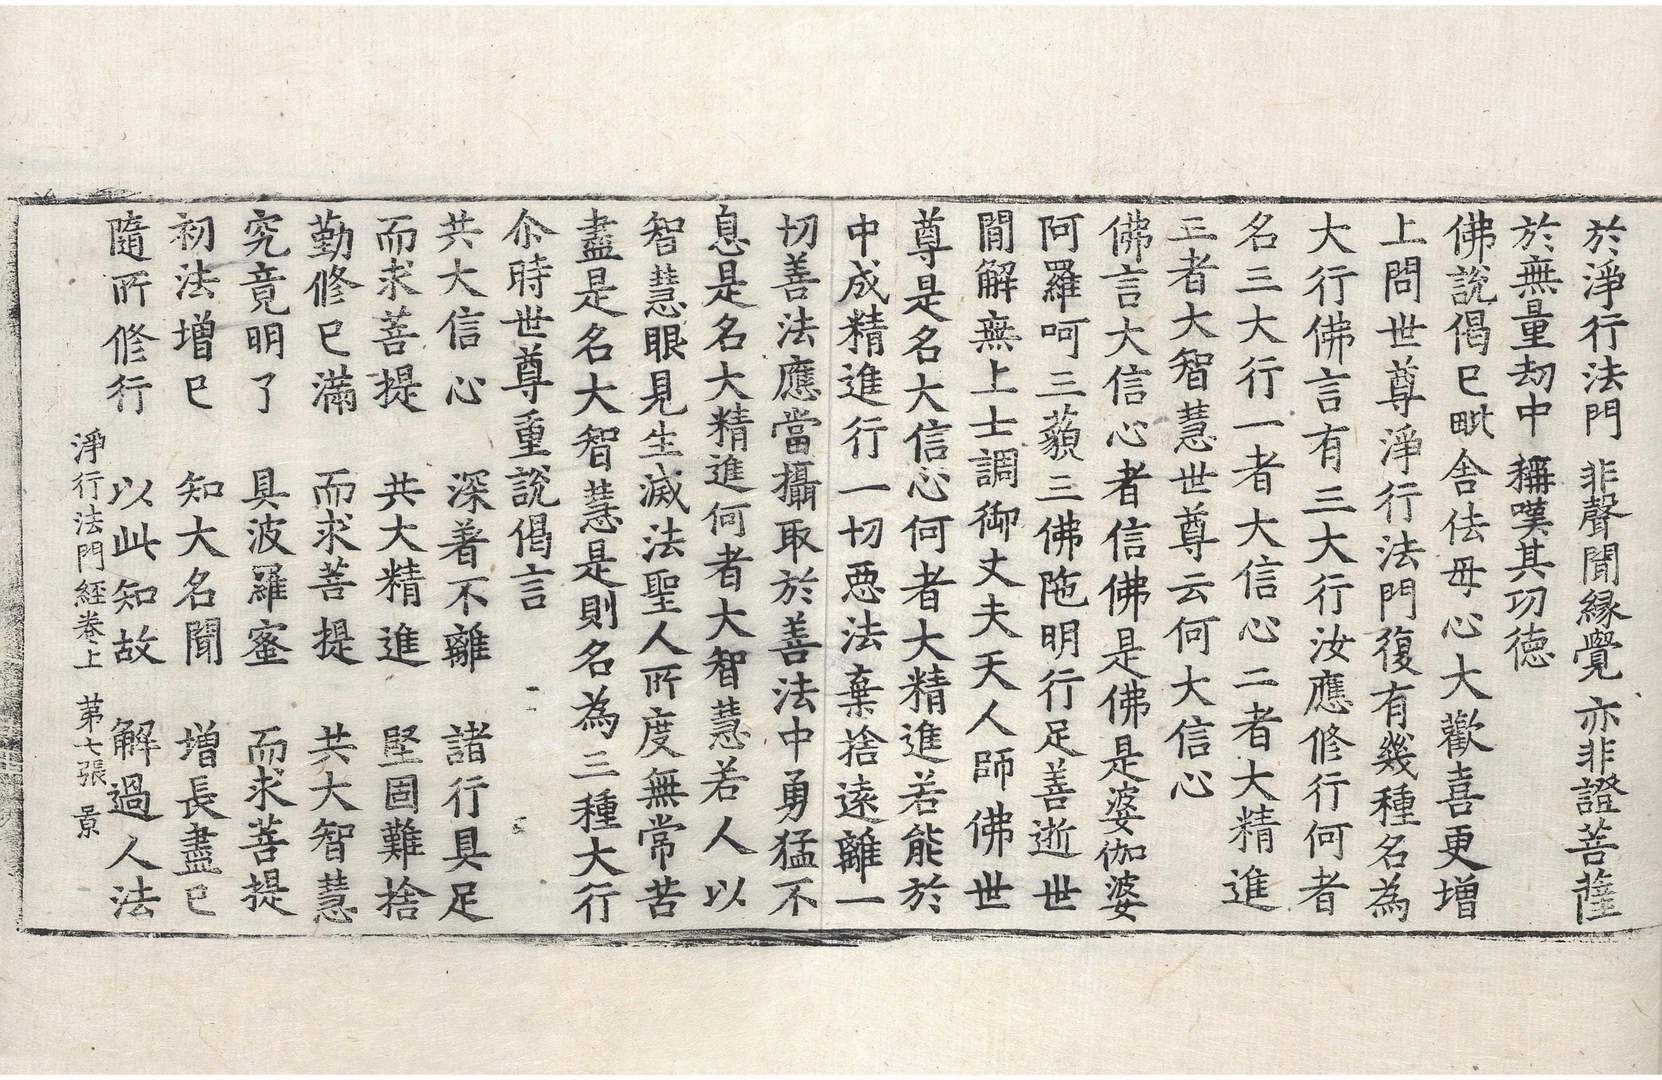 於淨行法門 非聲聞縁覺 亦非證菩薩
於無量劫中 稱嘆其功德
佛說偈已毗舍佉母心大歡喜更增
上問世尊淨行法門復有幾種名為
大行佛言有三大行汝應修行何者
名三大行一者大信心二者大精進
三者大智慧世尊云何大信心
佛言大信心者信佛是佛是婆伽婆
阿羅呵三藐三佛陁明行足善逝世
間解無上士調御丈夫天人師佛世
尊是名大信心何者大精進若能於
中成精進行一切惡法棄捨遠離一
切善法應當攝取於善法中勇猛不
息是名大精進何者大智慧若人以
智慧眼見生滅法聖人所度無常苦
盡是名大智慧是則名為三種大行
尒時世尊重說偈言
共大信心 深著不離 諸行具足
而求菩提 共大精進 堅固難捨
勤修已滿 而求菩提 共大智慧
究竟明了 具波羅蜜 而求菩提
初法增已 知大名聞 增長盡已
隨所修行 以此知故 解過人法
淨行法門經卷上 第七張 景